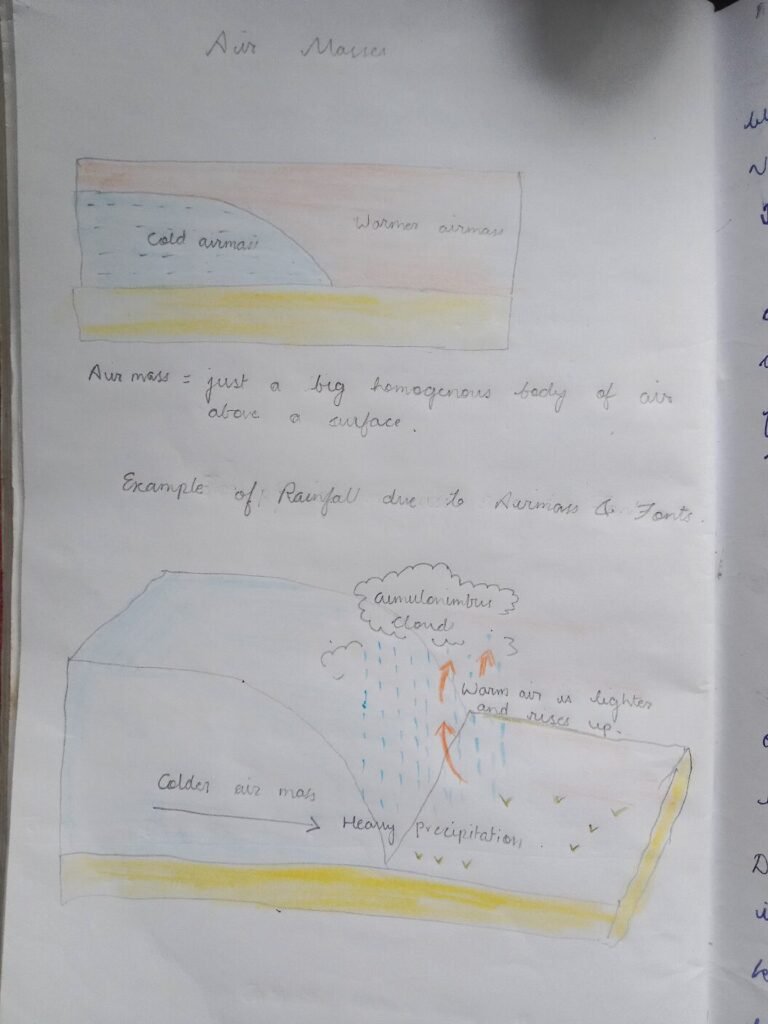 Air Masses
Cold airmass
Warmer airmass
Air mass = just a big homogenous body of air
above a surface.
Example of Rainfall due to Airmass & Fonts.
Cumulonimbus
Cloud
Warm air is lighter
and rises up.
Colder air mass
Heavy precipitation